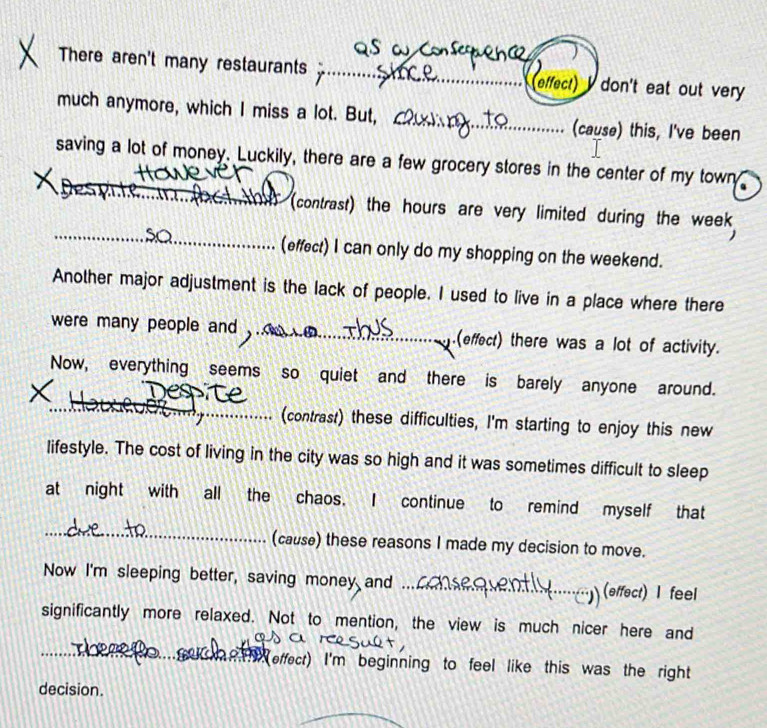 as a consequence
X There aren't many restaurants ; ..........since.................. (effect) I don't eat out very
much anymore, which I miss a lot. But, ...to............ (cause) this, I've been
saving a lot of money. Luckily, there are a few grocery stores in the center of my town.
However
X Despite in fact that (contrast) the hours are very limited during the week,
....................so...................... (effect) I can only do my shopping on the weekend.
Another major adjustment is the lack of people. I used to live in a place where there
were many people and , ............Thus..................,.(effect) there was a lot of activity.
Now, everything seems so quiet and there is barely anyone around.
Despite
X ....However....,............. (contrast) these difficulties, I'm starting to enjoy this new
lifestyle. The cost of living in the city was so high and it was sometimes difficult to sleep
at night with all the chaos. I continue to remind myself that
.....due......to......................... (cause) these reasons I made my decision to move.
Now I'm sleeping better, saving money, and ...consequently........,(effect) I feel
significantly more relaxed. Not to mention, the view is much nicer here and
as a reesult,
(effect) I'm beginning to feel like this was the right
decision.